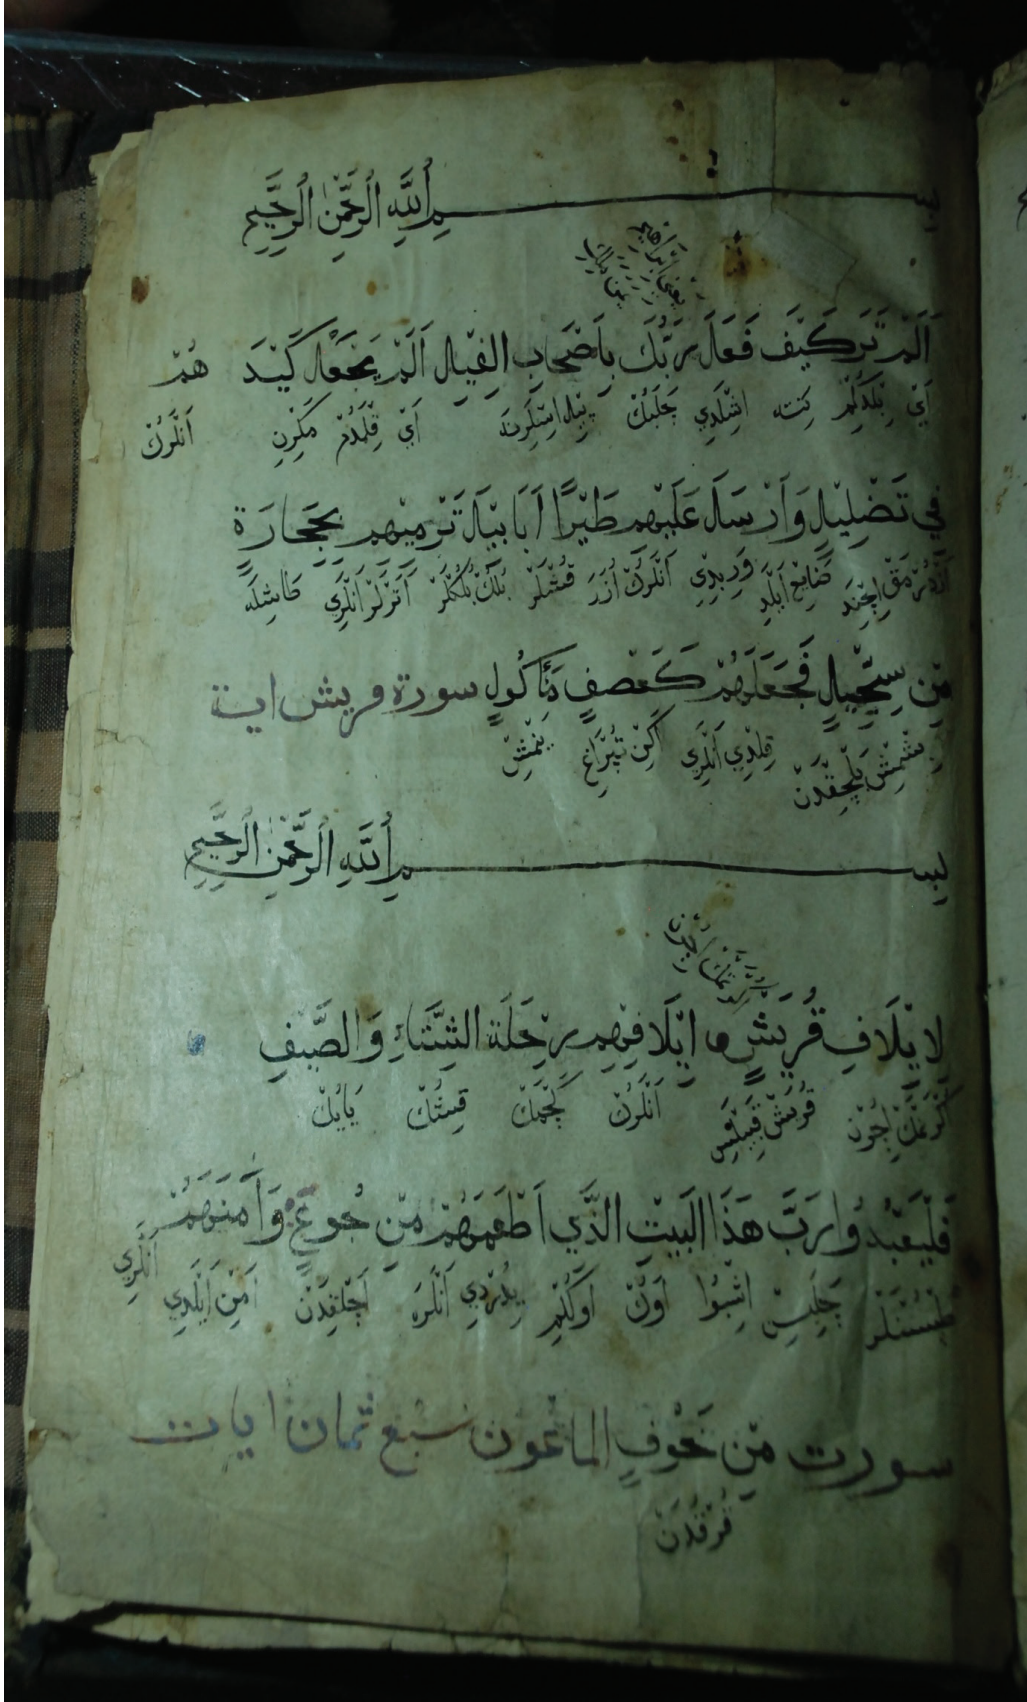 بِســـمِ اللَّهِ الرَّحْمٰنِ الرَّحِيمِ
يعني ابراهيم
اَلَمْ تَرَ كَيْفَ فَعَلَ رَبُّكَ بِاَصْحَابِ الْفِيلِ اَلَمْ يَجْعَلْ كَيْدَ هُمْ
اَيْ بِلْمَدِڭِمْ نِتَه اِشْلَدِي چَلَبُكْ پِيل اَيْ قِلْمَدُمْ مَكْرِنِ اَنْلَرُڭْ
فِي تَضْلِيلٍ وَاَرْسَلَ عَلَيْهِم طَيْرًا اَبَابِيلَ تَرْمِيْهِم بِحِجَارَةٍ
اِچِنْدَ ضَايِعْ اَيْلَدِ وَيِرْبِدِي اَنْلَرُڭْ اُزَرَ قُشْلَرْ بُلُكْ بُلُكْلَرْ اَتَرْلَرْ اَنْلَرِي طَاشِلَه
مِّن سِجِّيلٍ فَجَعَلَهُمْ كَعَصْفٍ مَّأْكُولٍ سورة قريش اية
بِشْمِشْ بَلْچِقْدَنْ قِلْدِي اَنْلَرِي اَكِنْ يَپْرَاغِ يِنْمِشْ
بِســـمِ اللَّهِ الرَّحْمٰنِ الرَّحِيمِ
لِاِيْلَافِ قُرَيْشٍ اِيْلَافِهِم رِحْلَةَ الشِّتَاءِ وَالصَّيْفِ
اُچُونْ قُرَيْشْ قَبِيلَسِ اَنْلَرُڭْ كُچْمَكْ قِشُڭْ يَايُڭْ
فَلْيَعْبُدُوا رَبَّ هَذَا الْبَيْتِ الَّذِي اَطْعَمَهُمْ مِّن جُوعٍ وَآمَنَهُمْ
طَپْسُنْلَرْ چَلَبِسِ اِشْبُوا اَوُڭْ اُوكِمْ يِدُرْدِي اَنْلَرَ اَچْلِقْدَنْ اَمِنْ اَيْلَدِي اَنْلَرِي
سورت مِّن خَوْفٍ الماعون سبع ثمان ايات
قُرْقُدَنْ